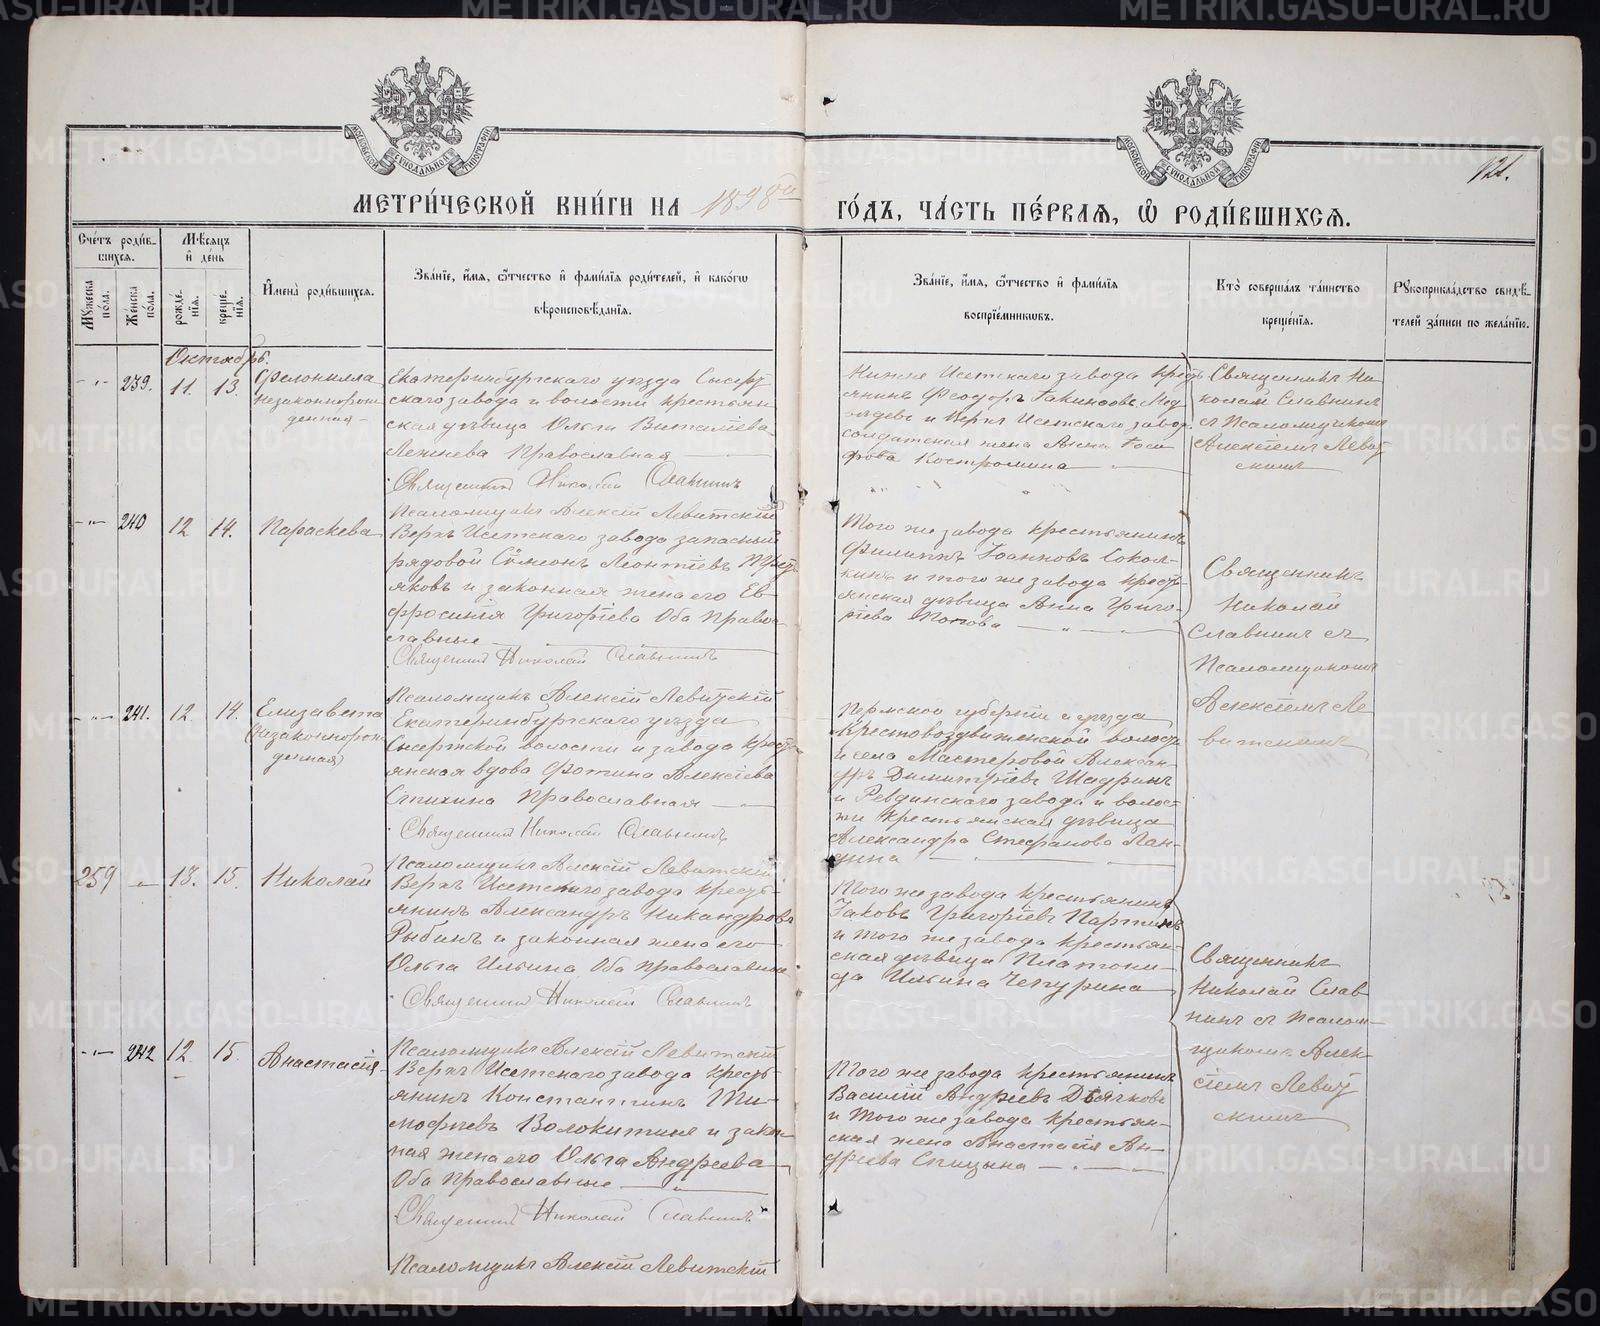 МЕТРИ́ЧЕСКОЙ КНИ́ГИ НА 1898ой ГО́ДЪ, ЧА́СТЬ ПЕ́РВАѦ, Ѡ҆ РОДИ́ВШИХСѦ.
121.
МОСКОВСКОЙ СУНОДАЛЬНОЙ ТИПОГРАФІИ
МОСКОВСКОЙ СУНОДАЛЬНОЙ ТИПОГРАФІИ
Сче́тъ роди́вшихсѧ.
Мꙋ́жеска по́ла.
Же́нска по́ла.
Мѣ́сѧцъ и҆ де́нь
рожде́нїѧ.
креще́нїѧ.
И҆мена̀ роди́вшихсѧ.
Зва́нїе, и҆́мѧ, ѻ҆́тчество и҆ фами́лїѧ роди́телей, и҆ како́гѡ
вѣроисповѣ́данїѧ.
Зва́нїе, и҆́мѧ, ѻ҆́тчество и҆ фами́лїѧ
воспрїе́мникѡвъ.
Кто̀ соверша́лъ та́инство
креще́нїѧ.
Рꙋкоприкла́дство свидѣ́телей за́писи по жела́нїю.
Октябрь.
-"- 239. 11. 13.
Фелонилла
незаконнорож
денная
Екатеринбургскаго уѣзда Сысерт
скаго завода и волости крестьян
ская дѣвица Ольга Виталіева
Лежнева Православная
Священникъ Николай Славнинъ
Псаломщикъ Алексій Левитскій
Нижне Исетскаго завода крест
янинъ Феодоръ Іакимовъ Мед
вѣдевъ и Верхъ Исетскаго завод
солдатская жена Анна
Костромина
Священникъ Ни-
колай Славнинъ
съ Псаломщикомъ
Алексіемъ Левит
скимъ
-"- 240 12 14.
Параскева
Верхъ Исетскаго завода запасный
рядовой Сѵмеонъ Леонтіевъ Трет
яковъ и законная жена его Ев-
фросинія Григоріева Оба Право-
славные
Священникъ Николай Славнинъ
Псаломщикъ Алексій Левитскій
Того же завода крестьянинъ
Филиппъ Іоанновъ Сокол-
кинъ и того же завода крест-
янская дѣвица Анна Григо-
ріева Попова
Священникъ
Николай
Славнинъ съ
Псаломщикомъ
Алексіемъ Ле
витскимъ
-"- 241. 12. 14.
Елизавета
(незаконнорож
денная)
Екатеринбургскаго уѣзда
Сысертской волости и завода крест
янская вдова Фотина Алексіева
Стихина Православная
Священникъ Николай Славнинъ
Псаломщикъ Алексій Левитскій
Пермской губерніи и уѣзда
Крестовоздвиженской волост
и села Мастеровой Алексан-
дръ Димитріевъ Шадринъ
и Ревдинскаго завода и волос-
ти крестьянская дѣвица
Александра Стефанова Пан-
дина
259 - 13. 15.
Николай
Верхъ Исетскаго завода крест-
янинъ Александръ Никандровъ
Рыбинъ и законная жена его
Ольга Ильина Оба православные
Священникъ Николай Славнинъ
Псаломщикъ Алексій Левитскій
Того же завода крестьянинъ
Іаковъ Григоріевъ Паршинъ
и того же завода крестьян-
ская дѣвица Платони-
да Ильина Чепурина
Священникъ
Николай Слав
нинъ съ Псалом-
щикомъ Алек-
сіемъ Левит
скимъ
-"- 242 12. 15.
Анастасія
Верхъ Исетскаго завода крест-
янинъ Константинъ Ти-
мофеевъ Волокитинъ и закон-
ная жена его Ольга Андреева
Оба Православные
Священникъ Николай Славнинъ
Псаломщикъ Алексій Левитскій
Того же завода крестьянинъ
Василій Андреевъ Дьячковъ
и того же завода крестьян-
ская жена Анастасія Ан-
дреева Спицына
METRIKI.GASO-URAL.RU